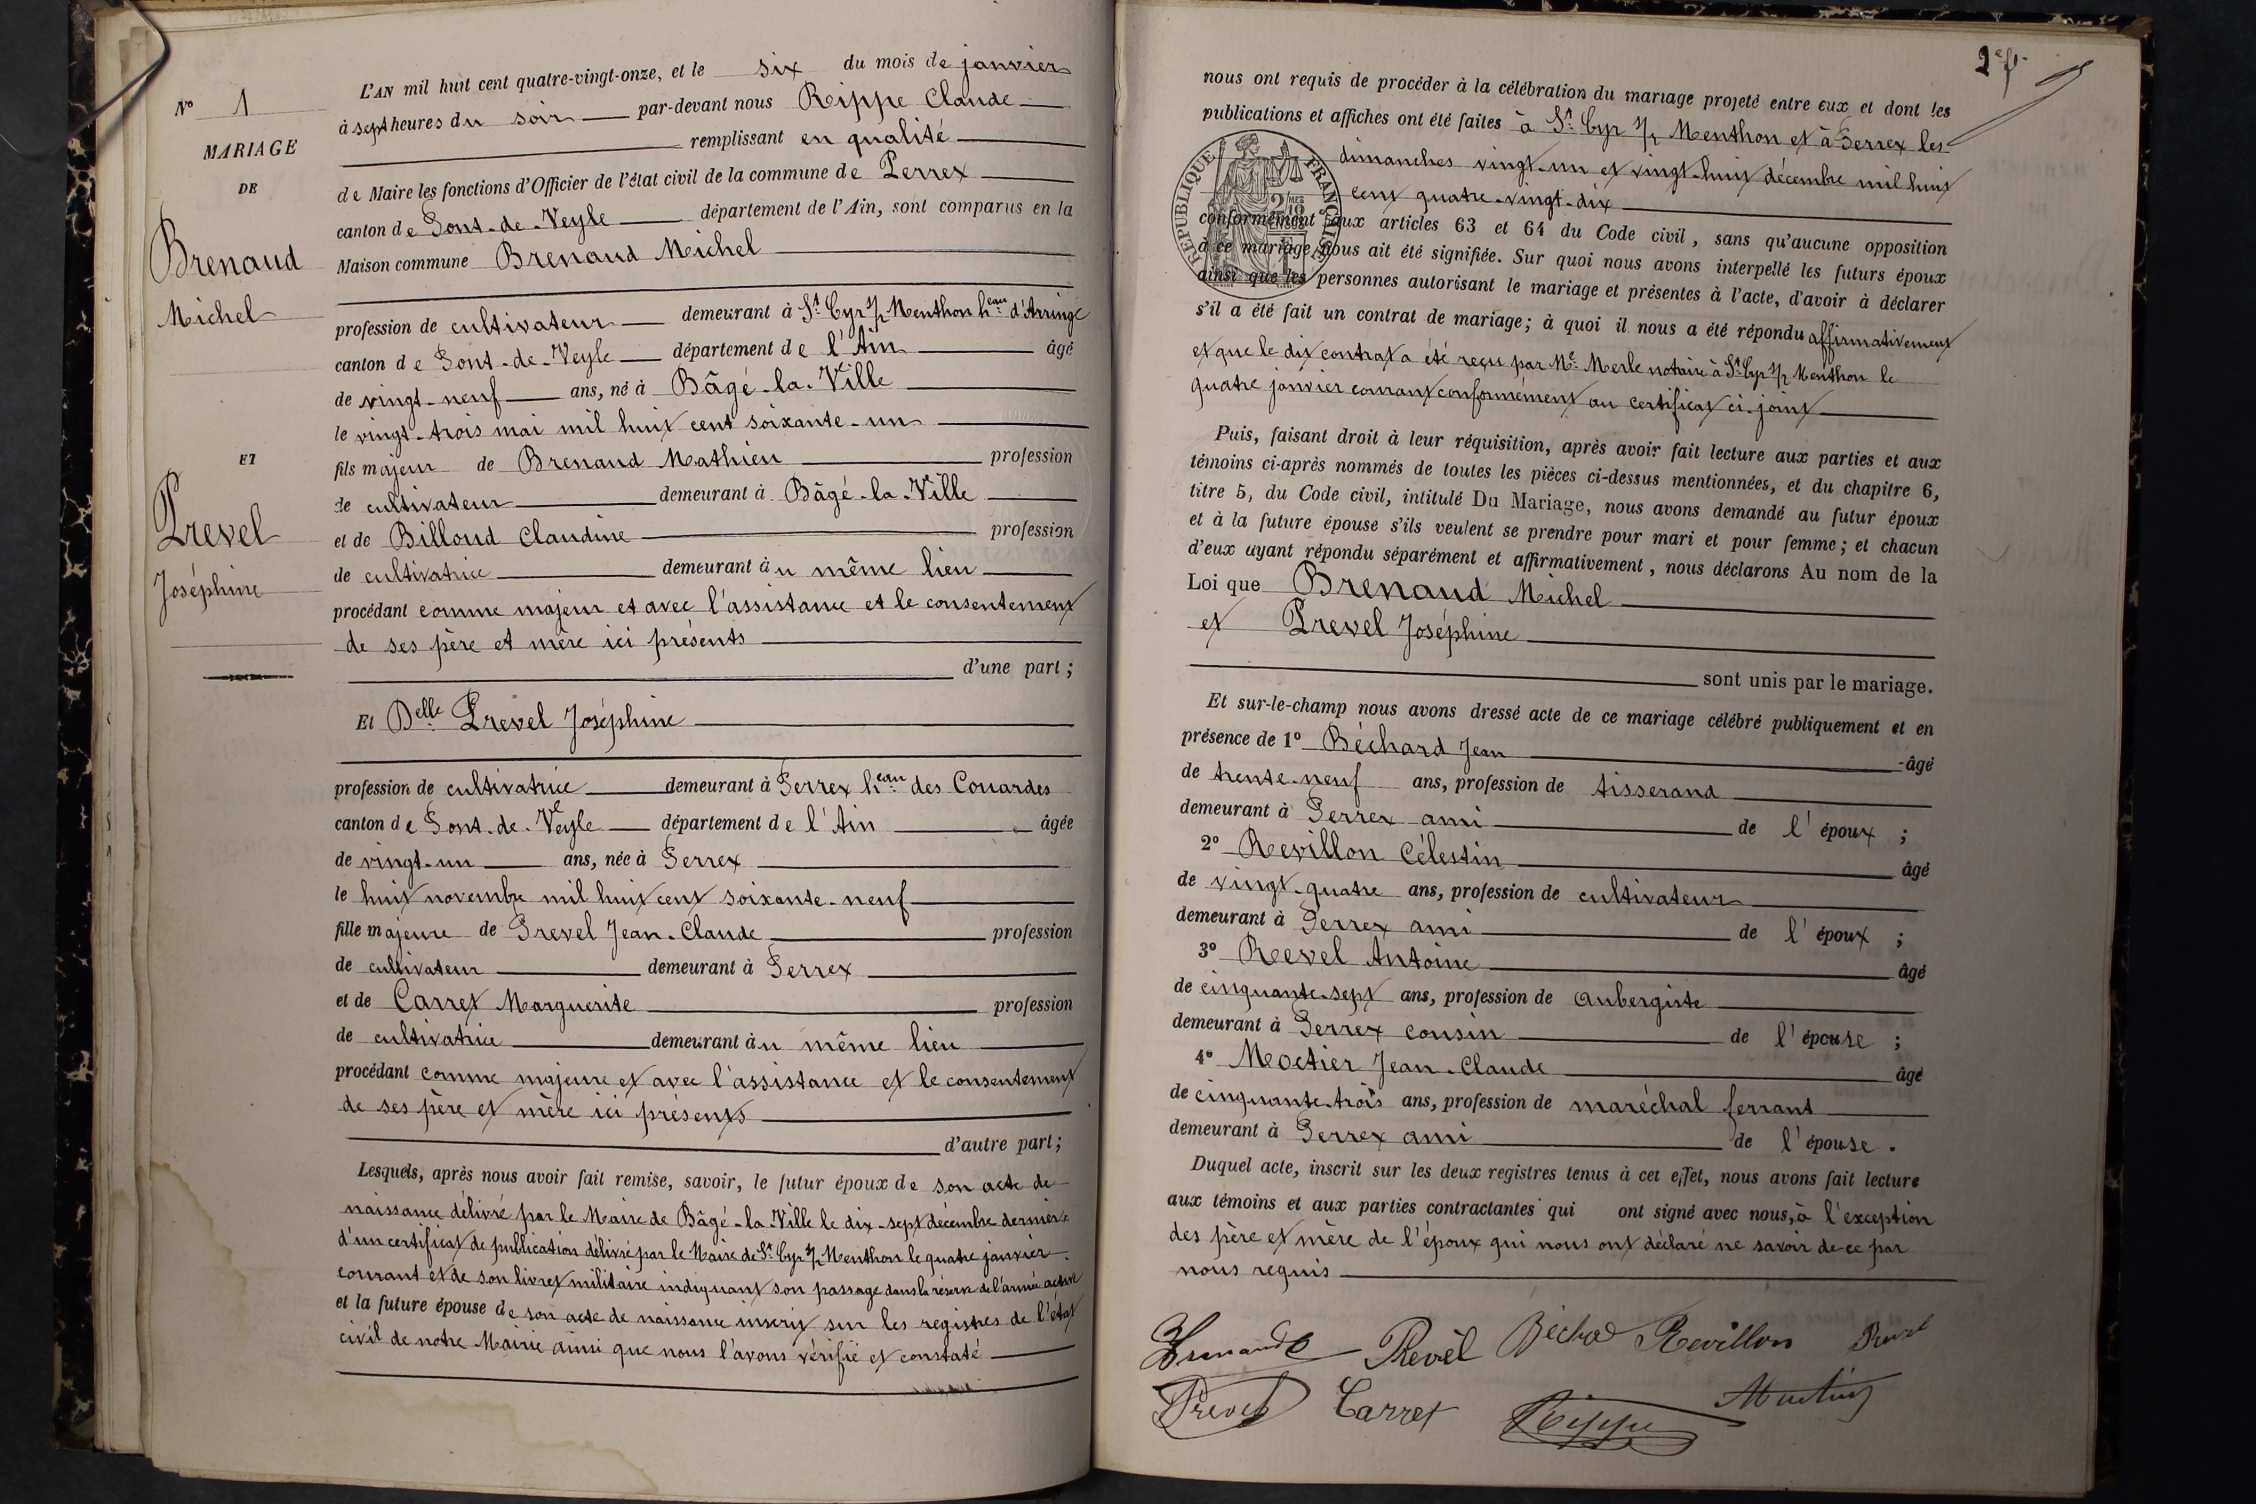 N° 1
MARIAGE
DE
Brenaud
Michel
ET
Prevel
Joséphine
L'AN mil huit cent quatre-vingt-onze, et le six du mois de janvier
à sept heures du soir par-devant nous Rippe Claude
remplissant en qualité
de Maire les fonctions d'Officier de l'état civil de la commune de Perrex
canton de Pont-de-Veyle département de l'Ain, sont comparus en la
Maison commune Brenaud Michel
profession de cultivateur demeurant à St Cyr s/ Menthon heau d'Arringe
canton de Pont-de-Veyle département de l'Ain âgé
de vingt-neuf ans, né à Bâgé-la-Ville
le vingt-trois mai mil huit cent soixante-un
fils majeur de Brenaud Mathieu profession
de cultivateur demeurant à Bâgé-la-Ville
et de Billoud Claudine profession
de cultivatrice demeurant au même lieu
procédant comme majeur et avec l'assistance et le consentement
de ses père et mère ici présents
d'une part ;
Et Delle Prevel Joséphine
profession de cultivatrice demeurant à Perrex heau des Couardes
canton de Pont-de-Veyle département de l'Ain âgée
de vingt-un ans, née à Perrex
le huit novembre mil huit cent soixante-neuf
fille majeure de Prevel Jean-Claude profession
de cultivateur demeurant à Perrex
et de Carret Marguerite profession
de cultivatrice demeurant au même lieu
procédant comme majeure et avec l'assistance et le consentement
de ses père et mère ici présents
d'autre part ;
Lesquels, après nous avoir fait remise, savoir, le futur époux de son acte de
naissance délivré par le Maire de Bâgé-la-Ville le dix-sept décembre dernier
d'un certificat de publication délivré par le Maire de St Cyr s/ Menthon le quatre janvier
courant et de son livret militaire indiquant son passage dans la réserve de l'armée active
et la future épouse de son acte de naissance inscrit sur les registres de l'état
civil de notre Mairie ainsi que nous l'avons vérifié et constaté
2e f.
nous ont requis de procéder à la célébration du mariage projeté entre eux et dont les
publications et affiches ont été faites à St Cyr s/ Menthon et à Perrex les
dimanches vingt-un et vingt-huit décembre mil huit
cent quatre-vingt-dix
RÉPUBLIQUE FRANÇAISE
conformément aux articles 63 et 64 du Code civil, sans qu'aucune opposition
à ce mariage nous ait été signifiée. Sur quoi nous avons interpellé les futurs époux
ainsi que les personnes autorisant le mariage et présentes à l'acte, d'avoir à déclarer
s'il a été fait un contrat de mariage ; à quoi il nous a été répondu affirmativement
et que le dit contrat a été reçu par Me Merle notaire à St Cyr s/ Menthon le
quatre janvier courant conformément au certificat ci-joint
Puis, faisant droit à leur réquisition, après avoir fait lecture aux parties et aux
témoins ci-après nommés de toutes les pièces ci-dessus mentionnées, et du chapitre 6,
titre 5, du Code civil, intitulé Du Mariage, nous avons demandé au futur époux
et à la future épouse s'ils veulent se prendre pour mari et pour femme ; et chacun
d'eux ayant répondu séparément et affirmativement, nous déclarons Au nom de la
Loi que Brenaud Michel
et Prevel Joséphine
sont unis par le mariage.
Et sur-le-champ nous avons dressé acte de ce mariage célébré publiquement et en
présence de 1° Béchard Jean âgé
de trente-neuf ans, profession de tisserand
demeurant à Perrex ami de l'époux ;
2° Revillon Célestin âgé
de vingt-quatre ans, profession de cultivateur
demeurant à Perrex ami de l'époux ;
3° Revel Antoine âgé
de cinquante-sept ans, profession de aubergiste
demeurant à Perrex cousin de l'épouse ;
4° Moetier Jean-Claude âgé
de cinquante-trois ans, profession de maréchal ferrant
demeurant à Perrex ami de l'épouse.
Duquel acte, inscrit sur les deux registres tenus à cet effet, nous avons fait lecture
aux témoins et aux parties contractantes qui ont signé avec nous, à l'exception
des père et mère de l'époux qui nous ont déclaré ne savoir de ce par
nous requis
Brenaud Revel Béchard Revillon
Prevel Carret Rippe